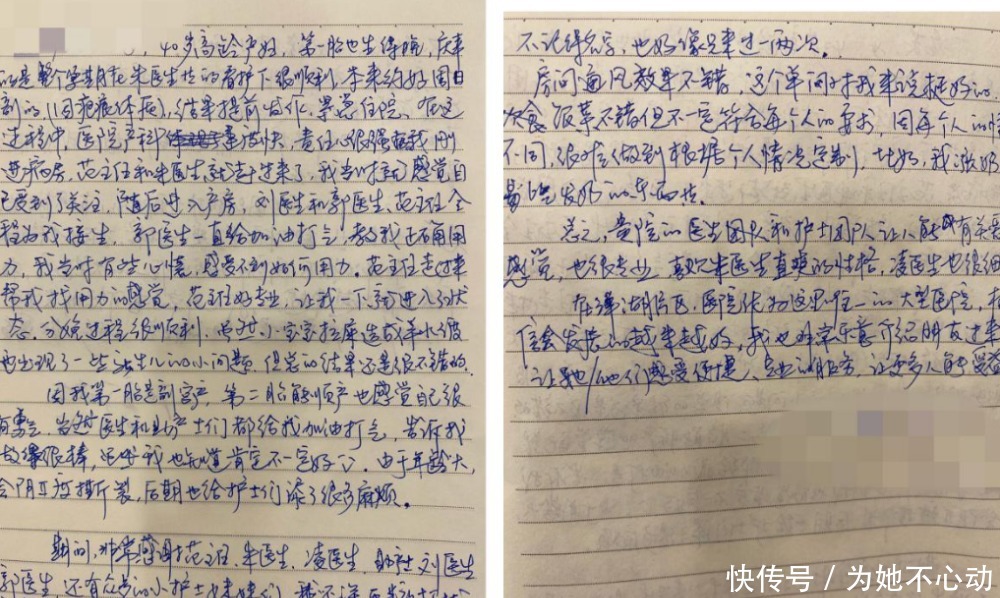 40岁高龄产妇，第一胎也生得晚，庆幸
的是整个孕期在朱医生的看护下很顺利，本来约好周日
剖的，(因疤痕体质)，结果提前发作，紧急住院，在这
过程中，医院产科速度快，责任心很强，我刚
进病房，范主任和朱医生就过来了，我当时就感觉自
己受到了关注，随后进入产房，刘医生和郭医生、范主任全
程为我接生，郭医生一直给加油打气，教我正确用
力，我当时有些心慌，感受不到如何用力。范主任走过来
帮我找用力的感觉，范主任好专业，让我一下就进入了状
态。分娩过程很顺利，虽然小宝宝拉屎造成羊水
也出现了一些新生儿的小问题，但总的结果还是很不错的。
因我第一胎是剖宫产，第二胎能顺产也感觉自己很
有勇气，当时医生和助产士们都给我加油打气，告诉我
做得很棒，虽然我也知道肯定不一定好。由于年龄大，
会阴Ⅱ度撕裂，后期也给护士们添了很多麻烦。
期间，非常感谢范主任、朱医生、凌医生、助产士刘医生
郭医生，还有众多的小护士
不记得名字，也好像只来过一两次。
房间通风效果不错，这个单间对我来说挺好的，
饮食饭菜不错但不一定符合每个人的要求，因每个人的
不同，很难做到根据个人情况定制，比如，我涨奶
易发奶的东西
总之，贵院的医生团队和护士团队让人能有亲
感觉，也很专业，喜欢朱医生直爽的性格，凌医生也很细
在泽湖片区，医院作为这里唯一的大型医院，
信会发展的越来越好，我也非常乐意介绍朋友过来
让她/他们感受便捷、专业的服务，让更多人能受益
快传号 / 为她不心动